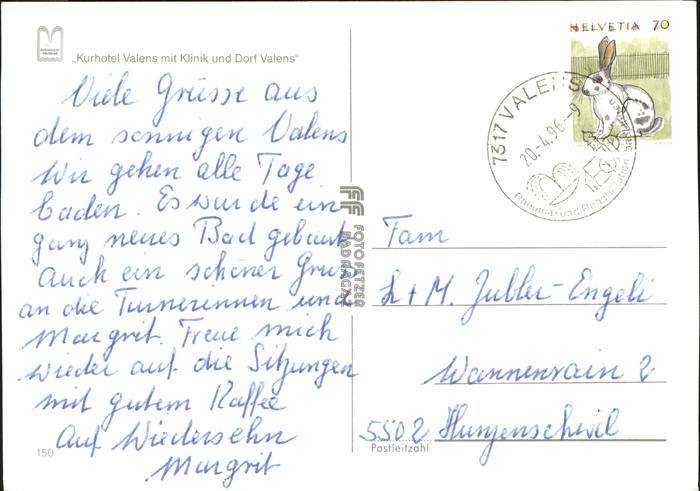 „Kurhotel Valens mit Klinik und Dorf Valens"
Viele Grüsse aus
dem sonnigen Valens
Wir gehen alle Tage
baden. Es wurde ein
ganz neues Bad gebaut
Auch ein schöner Gruss
an die Turnerinnen und
Margrit. Freue mich
wieder auf die Sitzungen
mit gutem Kaffee
Auf Wiedersehn
Margrit
150
FOTO FETZER
BAD RAGAZ
HELVETIA 70
7317 VALENS
20.-4.96.-9
Rheuma- und Rehabilitation
Fam
H + M. Zubler-Engeli
Wannenrain 2
5502 Hunzenschwil
Postleitzahl